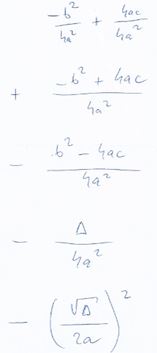 -b²/4a² + 4ac/4a²
+ -b² + 4ac/4a²
- b² - 4ac/4a²
- Δ/4a²
- (√Δ/2a)²